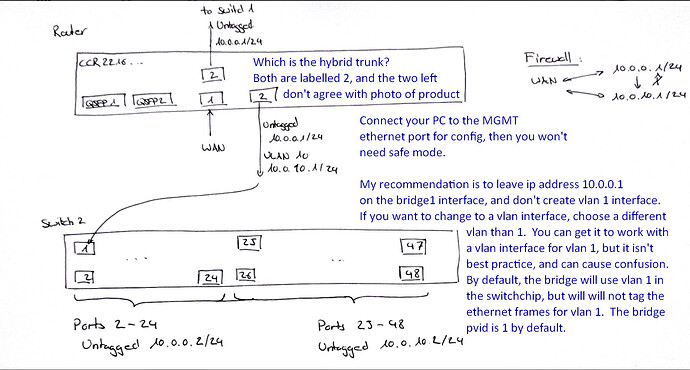 to Switch 1
Router
Untagged
10.0.0.1/24
CCR2216...
2
Which is the hybrid trunk?
Both are labelled 2, and the two left
don't agree with photo of product
QSFP1
QSFP2
1
2
Firewall:
WAN
10.0.0.1/24
10.0.10.1/24
WAN
Untagged
10.0.0.1/24
VLAN 10
10.0.10.1/24
Connect your PC to the MGMT
ethernet port for config, then you won't
need safe mode.
My recommendation is to leave ip address 10.0.0.1
on the bridge1 interface, and don't create vlan 1 interface.
If you want to change to a vlan interface, choose a different
vlan than 1. You can get it to work with
a vlan interface for vlan 1, but it isn't
best practice, and can cause confusion.
By default, the bridge will use vlan 1 in
the switchchip, but will will not tag the
ethernet frames for vlan 1. The bridge
pvid is 1 by default.
Switch 2
1
...
25
...
47
2
24
26
48
Ports 2-24
Untagged 10.0.0.2/24
Ports 23-48
Untagged 10.0.10.2/24